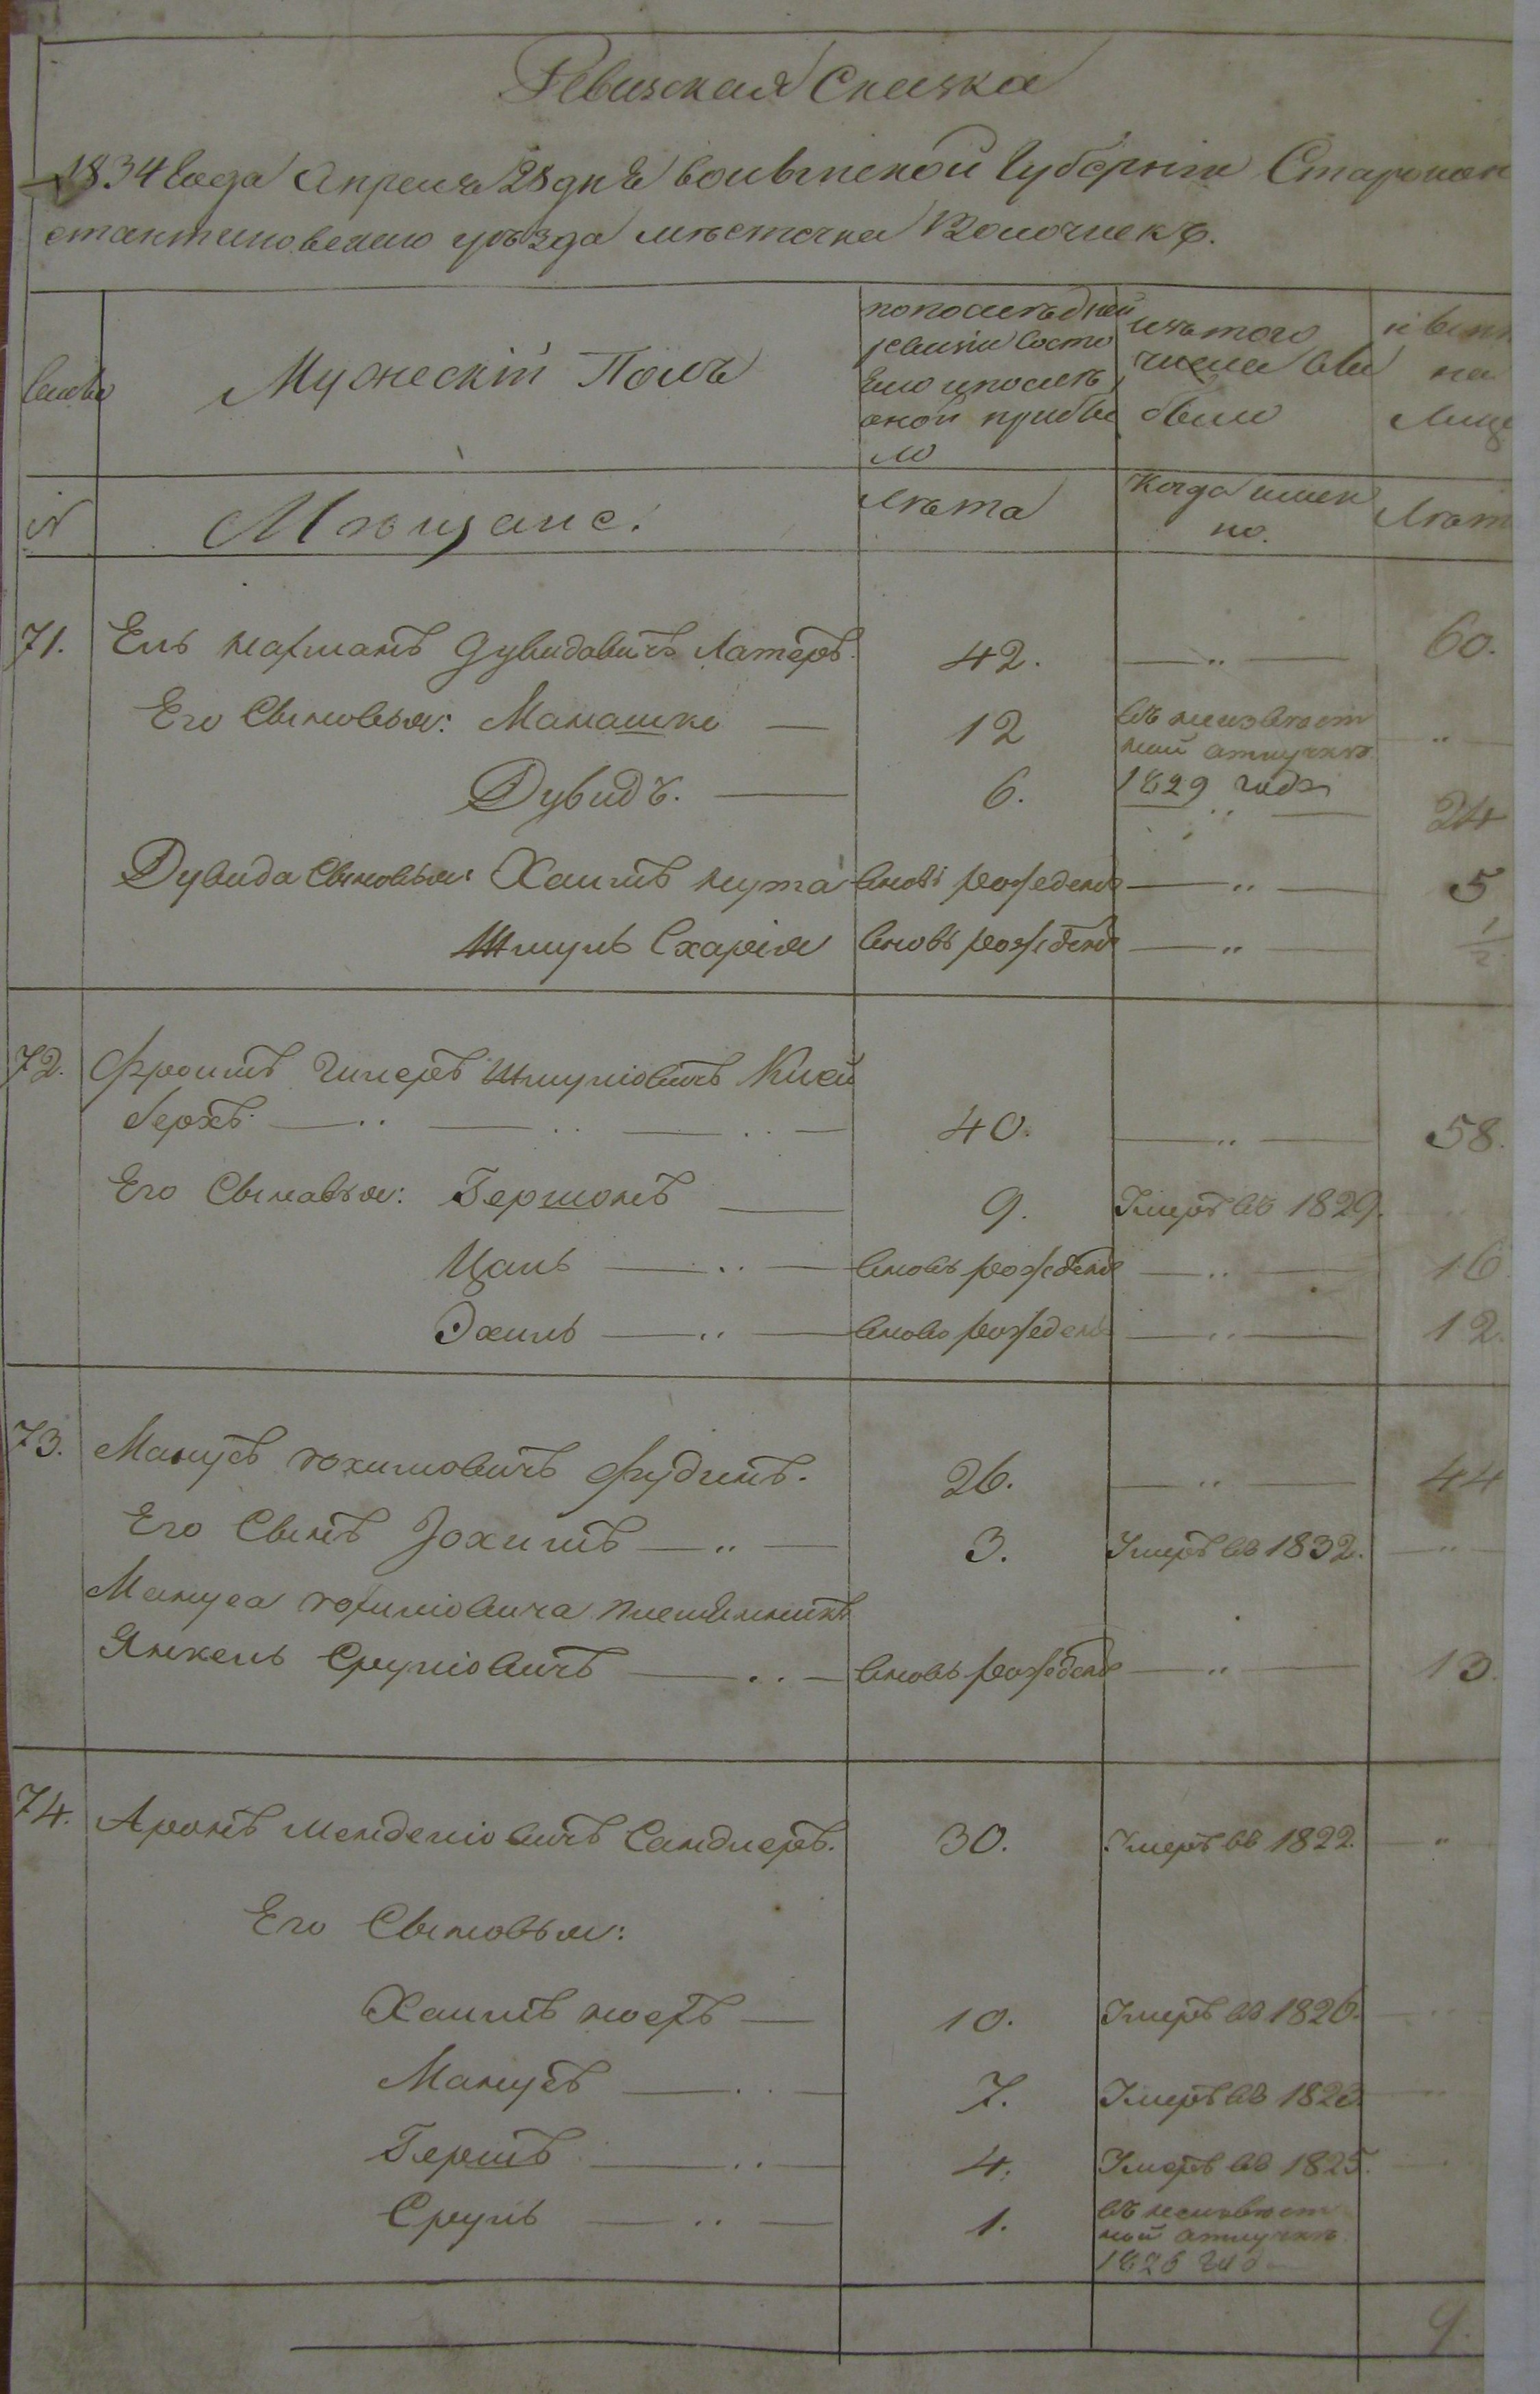 Ревизская Сказка
1834 Года Апреля 28 днѣ Волынской Губернiи Старокон
стантиновскаго уѣзда мѣстечка Волочискъ.
Семьи
Мужескiй Полъ
по последней
ревизiи Состо
яло и послѣ
оной прибы
ло
изъ того
числа вы
было
и нынѣ
на
Лице
№
Мѣщане.
Лѣта
Когда имен
но.
Лѣт
71. Ель Нахманъ Дувидовичъ Латеръ. 42. —„— 60.
Его Сыновья: Манашко — 12 въ неизвѣст
ной отлучкѣ —„—
1829 года
Дувидъ. — 6. —„— 24
Дувида Сыновья: Хаимъ Нута вновь рожденъ —„— 5
Шмуль Схарiя вновь рожденъ —„— 1/2
72. Фроимъ Гилеръ Шмулiовичъ
берхъ —„— 40. —„— 58.
Его Сыновья: Гершонъ — 9. Умеръ въ 1829.
Цаль —„— вновь рожденъ —„— 16
Эхиль —„— вновь рожденъ —„— 12.
73. Манусъ Iохимовичъ Фудимъ. 26. —„— 44
Его Сынъ Iохимъ —„— 3. Умеръ въ 1832. —„—
Мануса Iохимовича племѣнникъ
Янкель Срулiовичъ —„— вновь рожденъ —„— 13.
74. Аронъ Менделiовичъ Сандлеръ. 30. Умеръ въ 1822. —„—
Его Сыновья:
Хаимъ Iосъ — 10. Умеръ въ 1826. —„—
Манусъ —„— 7. Умеръ въ 1823. —„—
Гершъ —„— 4. Умеръ въ 1825. —„—
Сруль —„— 1. въ неизвѣст
ной отлучкѣ
1826 го
9.